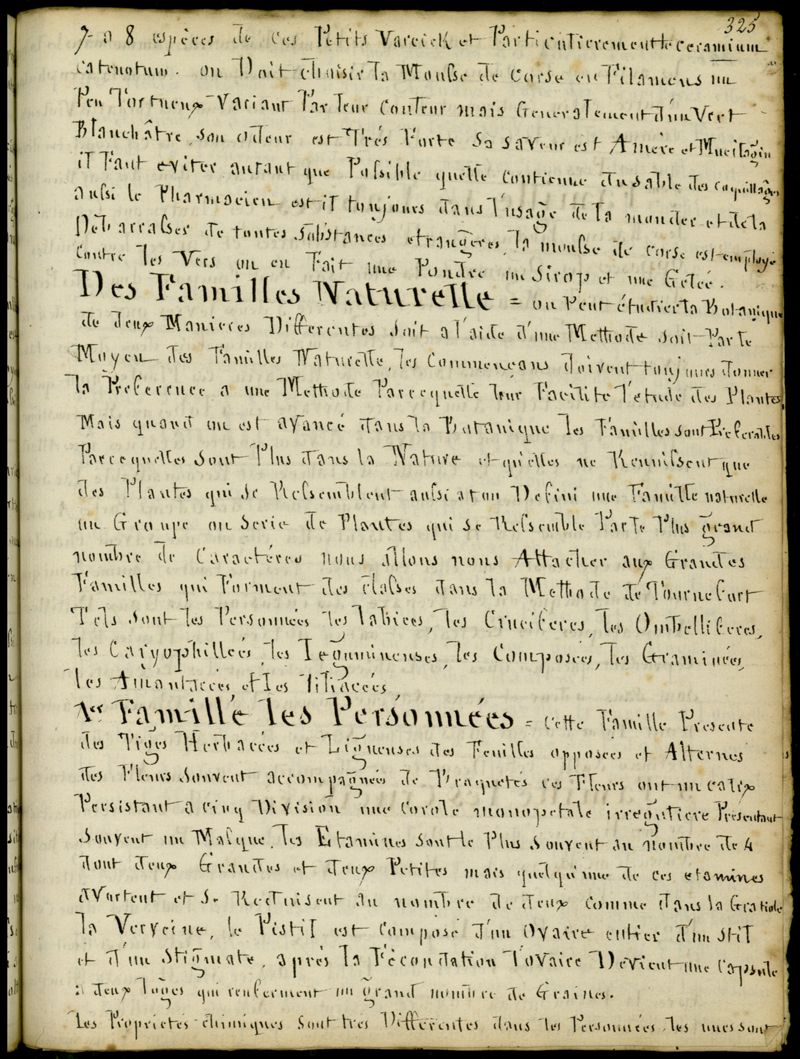 325
7 a 8 espèces de ces Petits Vareick et Particulierement le ceramium
catenatum. on Doit choisir la Mousse de Corse en Filamens un
Peu Tortueux Variant Par leur Couleur mais Generalement d'un Vert
Blanchâtre, son odeur est Très Forte Sa saveur est Amère et Mucilagin
il Faut eviter autant que Possible quelle Contienne du sable des coquillages
aussi le Pharmacien est il toujours dans l'usage de la monder et de la
Debarrasser de toutes substances etrangeres, la mousse de corse est employe
Contre les Vers on en Fait une Poudre un Sirop et une Gelée.
Des Familles Naturelle = on Peut étudier la Botanique
de deux Manieres Differentes soit a l'aide d'une Methode soit Par le
Moyen des Familles Naturelle, les Commençans doivent toujours donner
la Preference a une Methode Parcequelle leur Facilite l'etude des Plantes
Mais quand on est avancé dans la Botanique les Familles sont Preferables
Parcequelles sont Plus dans la Nature et qu'elles ne Reunissent que
des Plantes qui se Ressemblent aussi a ton Defini une Famille naturelle
un Groupe ou Serie de Plantes qui se Ressemble Par le Plus grand
nombre de Caractères nous allons nous Attacher aux Grandes
Familles qui Forment des classes dans la Methode de Tournefort
Tels sont les Personnées les labiées, les Cruciferes, les Ombelliferes,
les Caryophillées, les Legumineuses, les Composées, les Graminées,
les Amantacées, et les liliacées,
1re Famille les Personnées = Cette Famille Presente
des Tiges Herbacées et Ligneuses des Feuilles opposées et Alternes
des Fleurs Souvent accompagnées de Bractées ces Fleurs ont un calix
Persistant a cinq Division une Corole monopetale irregulière Présentant
Souvent un Masque, les Etamines sont le Plus Souvent au nombre de 4
dont deux Grandes et deux Petites mais quelqu'une de ces etamines
avortent et se Reduisent au nombre de deux comme dans la Gratiole
la Verveine, le Pistil est Composé d'un Ovaire entier d'un stil
et d'un Stigmate, après la Fécondation l'ovaire Devient une Capsule
a deux loges qui renferment un grand nombre de Graines.
Les Proprietés chimiques sont très Differentes dans les Personnées les unes sont